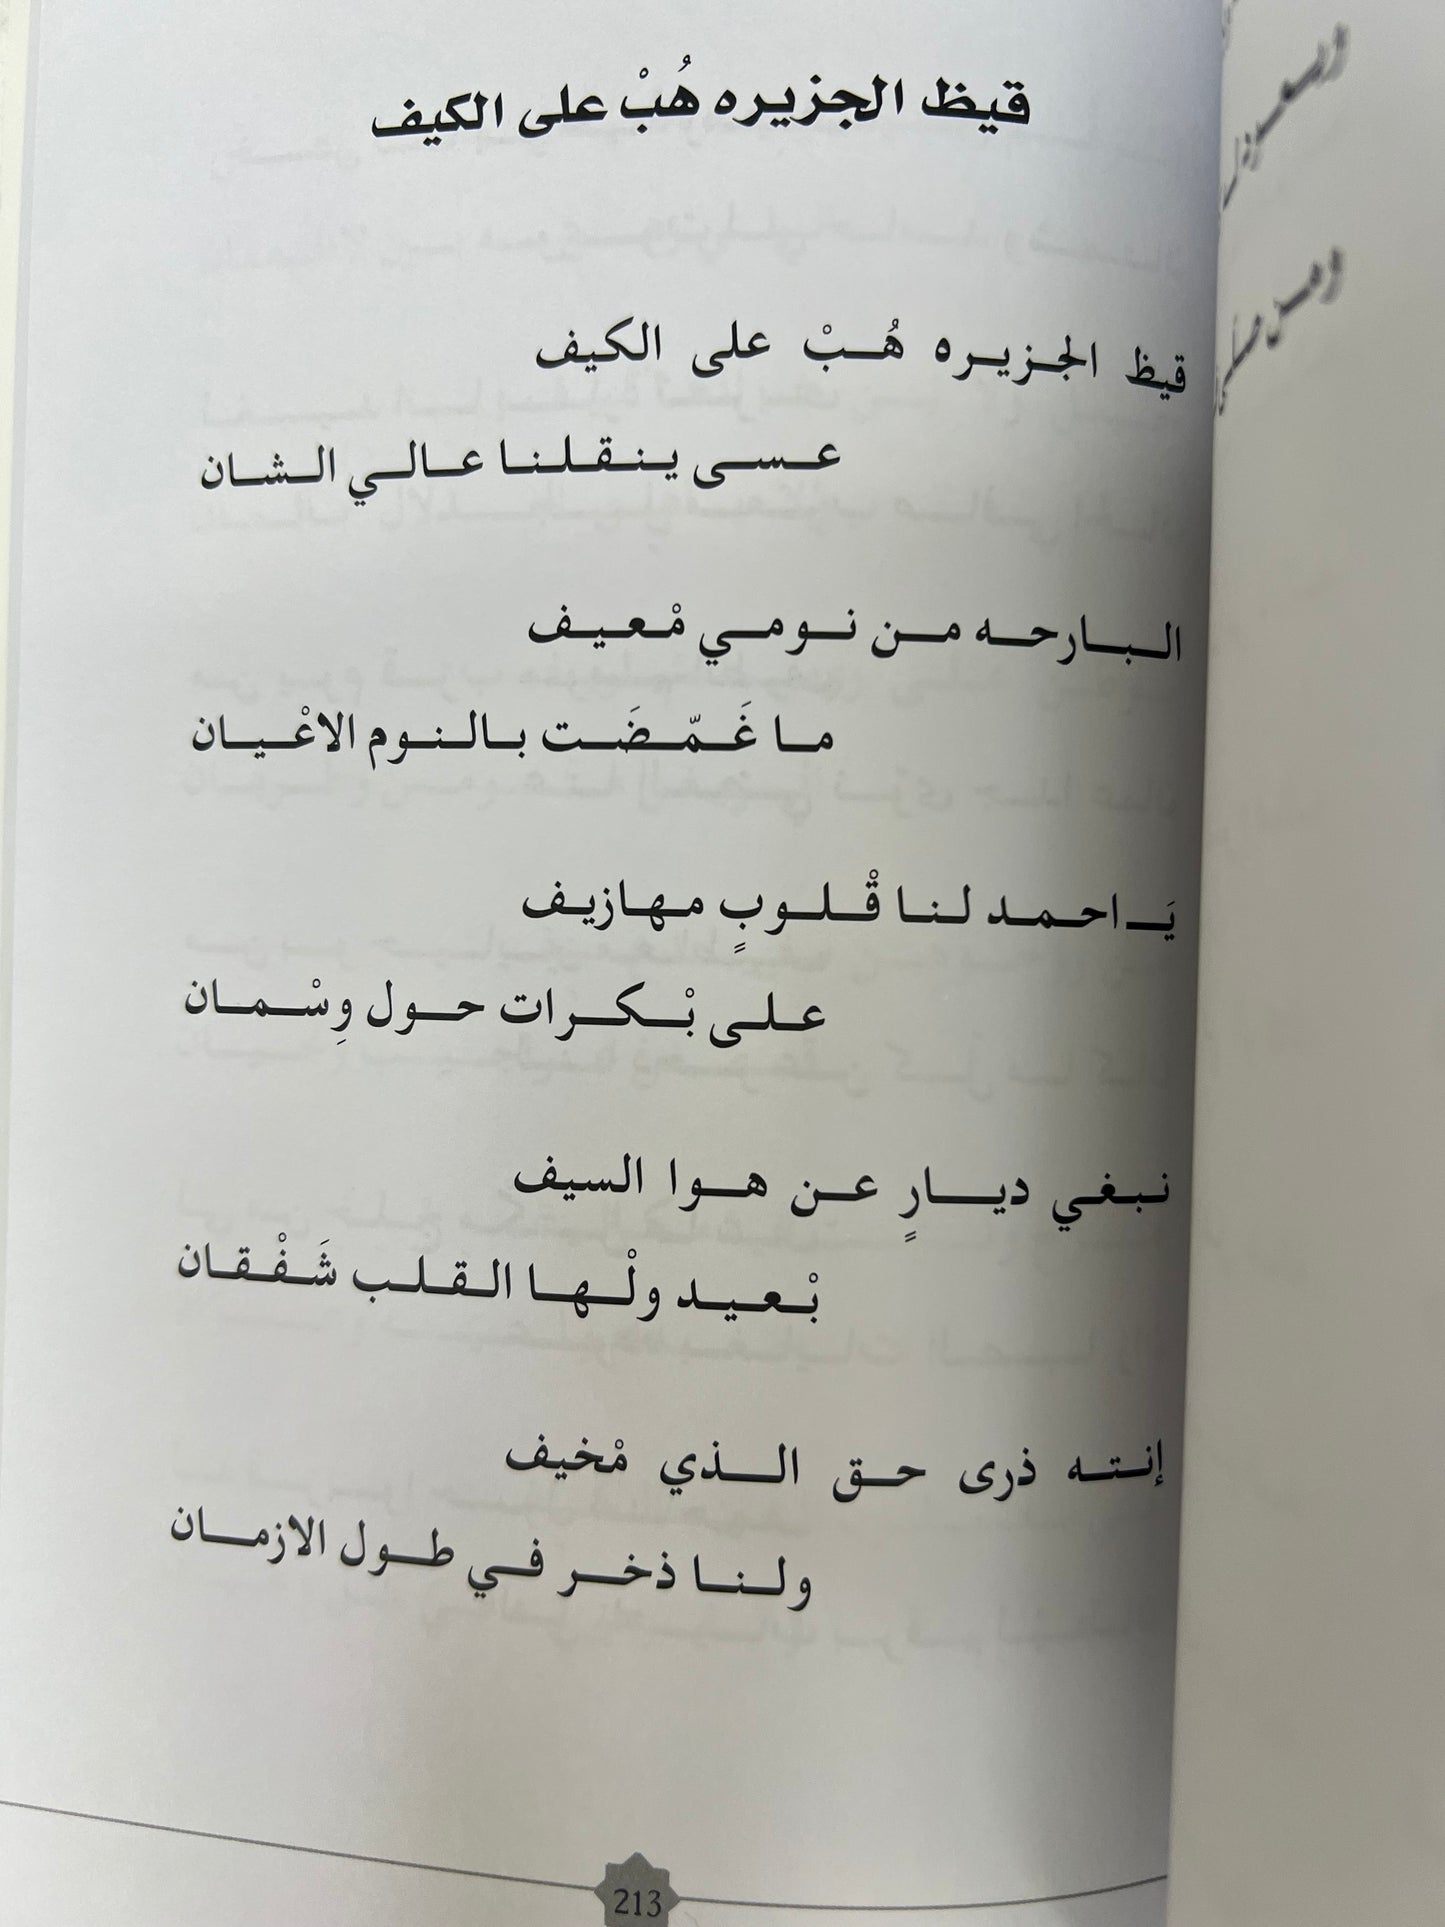 قيظ الجزيره هُبْ على الكيف
قيظ الجزيره هُبْ على الكيف
عسى ينقلنا عالي الشان
البارحه من نومي مْعيف
ما غَمّضَت بالنوم الاعْيان
يَـاحمد لنا قْلوبٍ مهازيف
على بْكرات حول وِسْمان
نبغي ديارٍ عن هوا السيف
بْعيد ولْها القلب شَفْقان
إنته ذرى حق الذي مْخيف
ولنا ذخر في طول الازمان
213